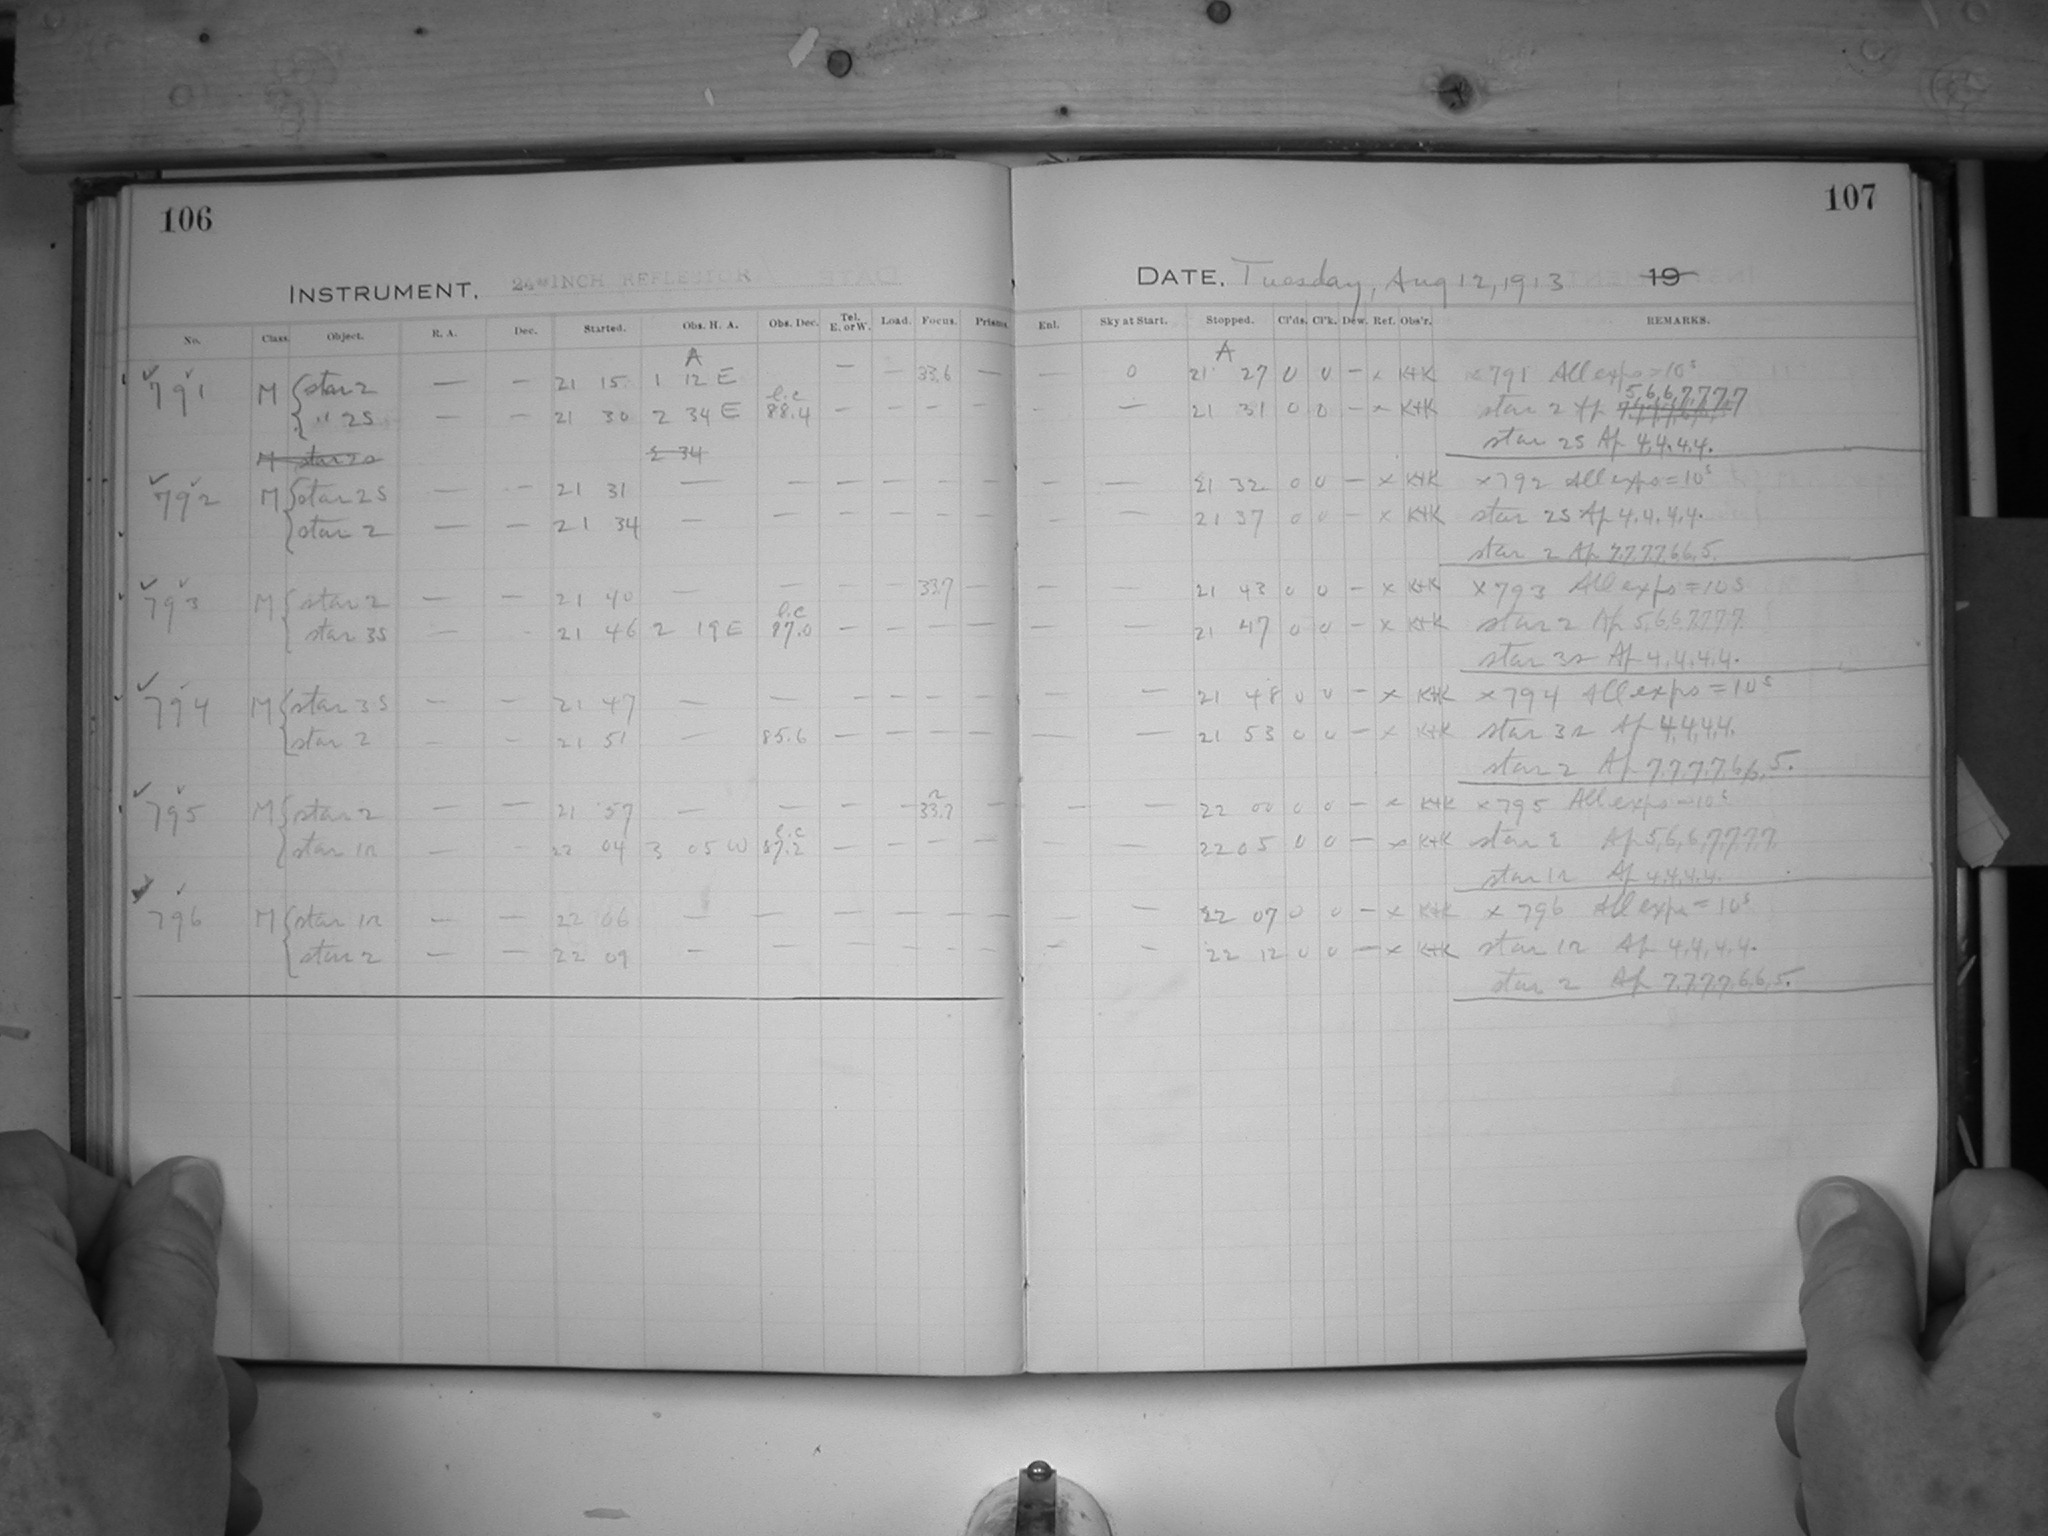 106
107
INSTRUMENT. 24-INCH REFLECTOR
DATE. Tuesday, Aug 12, 1913 19
No. Class. Object. R. A. Dec. Started. Obs. H. A. Obs. Dec. Tel. E. or W. Load. Focus. Prisms. Enl. Sky at Start. Stopped. Cl'ds. Cl'k. Dew. Ref. Obs'r. REMARKS.
A A
791 M star 2 — — 21 15 1 12 E — — 33.6 — — 0 21 27 0 0 — x K+K x 791 All expo = 10s
l.c 5,6,6,7,7,7,7
" 2S — — 21 30 2 34 E 88.4 — — — — — — 21 31 0 0 — x K+K star 2 Ap
M star 2S 2 34 star 2S Ap 4,4,4,4.
792 M star 2S — — 21 31 — — — — — — — — 21 32 0 0 — x K+K x 792 All expo = 10s
star 2 — — 21 34 — — — — — — — — 21 37 0 0 — x K+K star 2S Ap 4.4.4.4.
star 2 Ap 7.7.7.7.6.6.5.
793 M star 2 — — 21 40 — — — — 33.7 — — — 21 43 0 0 — x K+K x 793 All expo = 10s
l.c
star 3S — — 21 46 2 19 E 87.0 — — — — — — 21 47 0 0 — x K+K star 2 Ap 5,6,6,7,7,7,7.
star 3S Ap 4,4,4,4.
794 M star 3S — — 21 47 — — — — — — — — 21 48 0 0 — x K+K x 794 All expo = 10s
star 2 — — 21 51 — 85.6 — — — — — — 21 53 0 0 — x K+K star 3S Ap 4,4,4,4.
star 2 Ap 7,7,7,7,6,6,5.
795 M star 2 — — 21 57 — — — — 33.7 — — — 22 00 0 0 — x K+K x 795 All expo = 10s
l.c
star 1n — — 22 04 3 05 W 87.2 — — — — — — 22 05 0 0 — x K+K star 2 Ap 5,6,6,7,7,7,7.
star 1n Ap 4,4,4,4.
796 M star 1n — — 22 06 — — — — — — — — 22 07 0 0 — x K+K x 796 All expo = 10s
star 2 — — 22 09 — — — — — — — — 22 12 0 0 — x K+K star 1n Ap 4,4,4,4.
star 2 Ap 7,7,7,7,6,6,5.